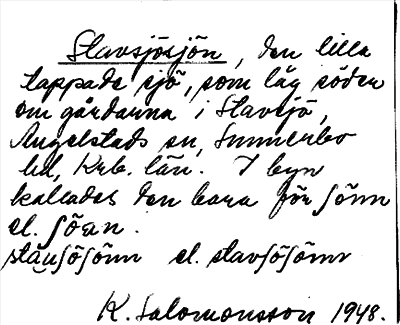 Slavsjösjön, den lilla
tappade sjö, som låg söder
om gårdarna i Slavsjö,
Angelstads sn, Sunnerbo
hd, Krb. län. I byn
kallades den bara för ʃönn
el. ʃöɛn.
slavʃöʃönn el. slavʃöʃönn
K. Salomonsson 1948.